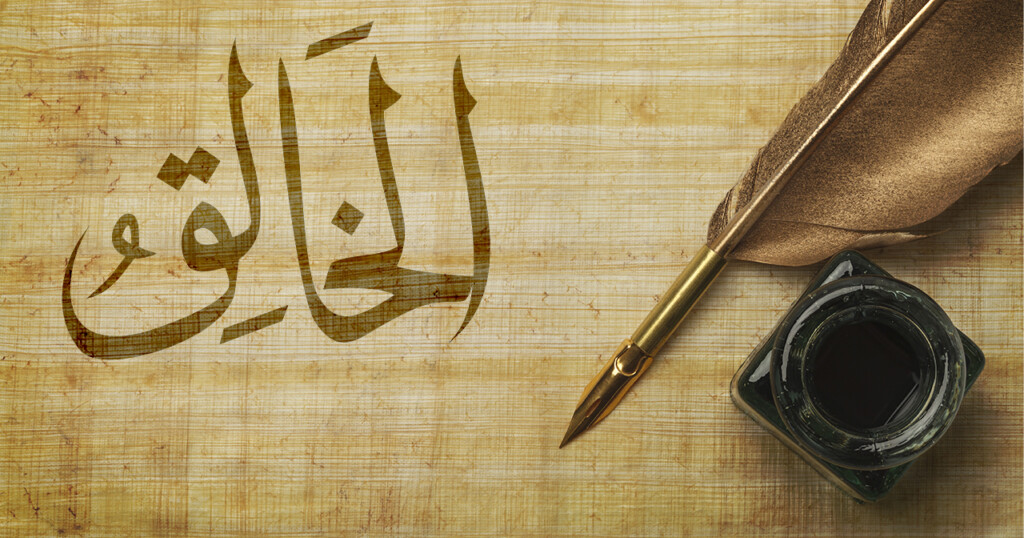 الْخَالِقُ